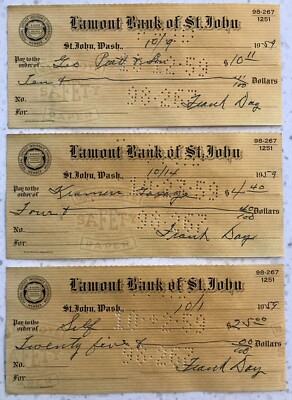 Lamont Bank of St. John
98-267
1251
St. John, Wash. 10/9 1959
Pay to the
order of Geo. Pratt & Son $10 11
Ten & 11/100 Dollars
No.
For Frank Day
SAFETY
98-267
Lamont Bank of St. John
98-267
1251
St. John, Wash. 10/14 1959
Pay to the
order of Kramer Garage $4 40
Four & 40/100 Dollars
No.
For Frank Day
SAFETY
PAPER
98-267
Lamont Bank of St. John
98-267
1251
St. John, Wash. 10/1 1959
Pay to the
order of Self $25.00
Twenty five & 00/100 Dollars
No.
For Frank Day